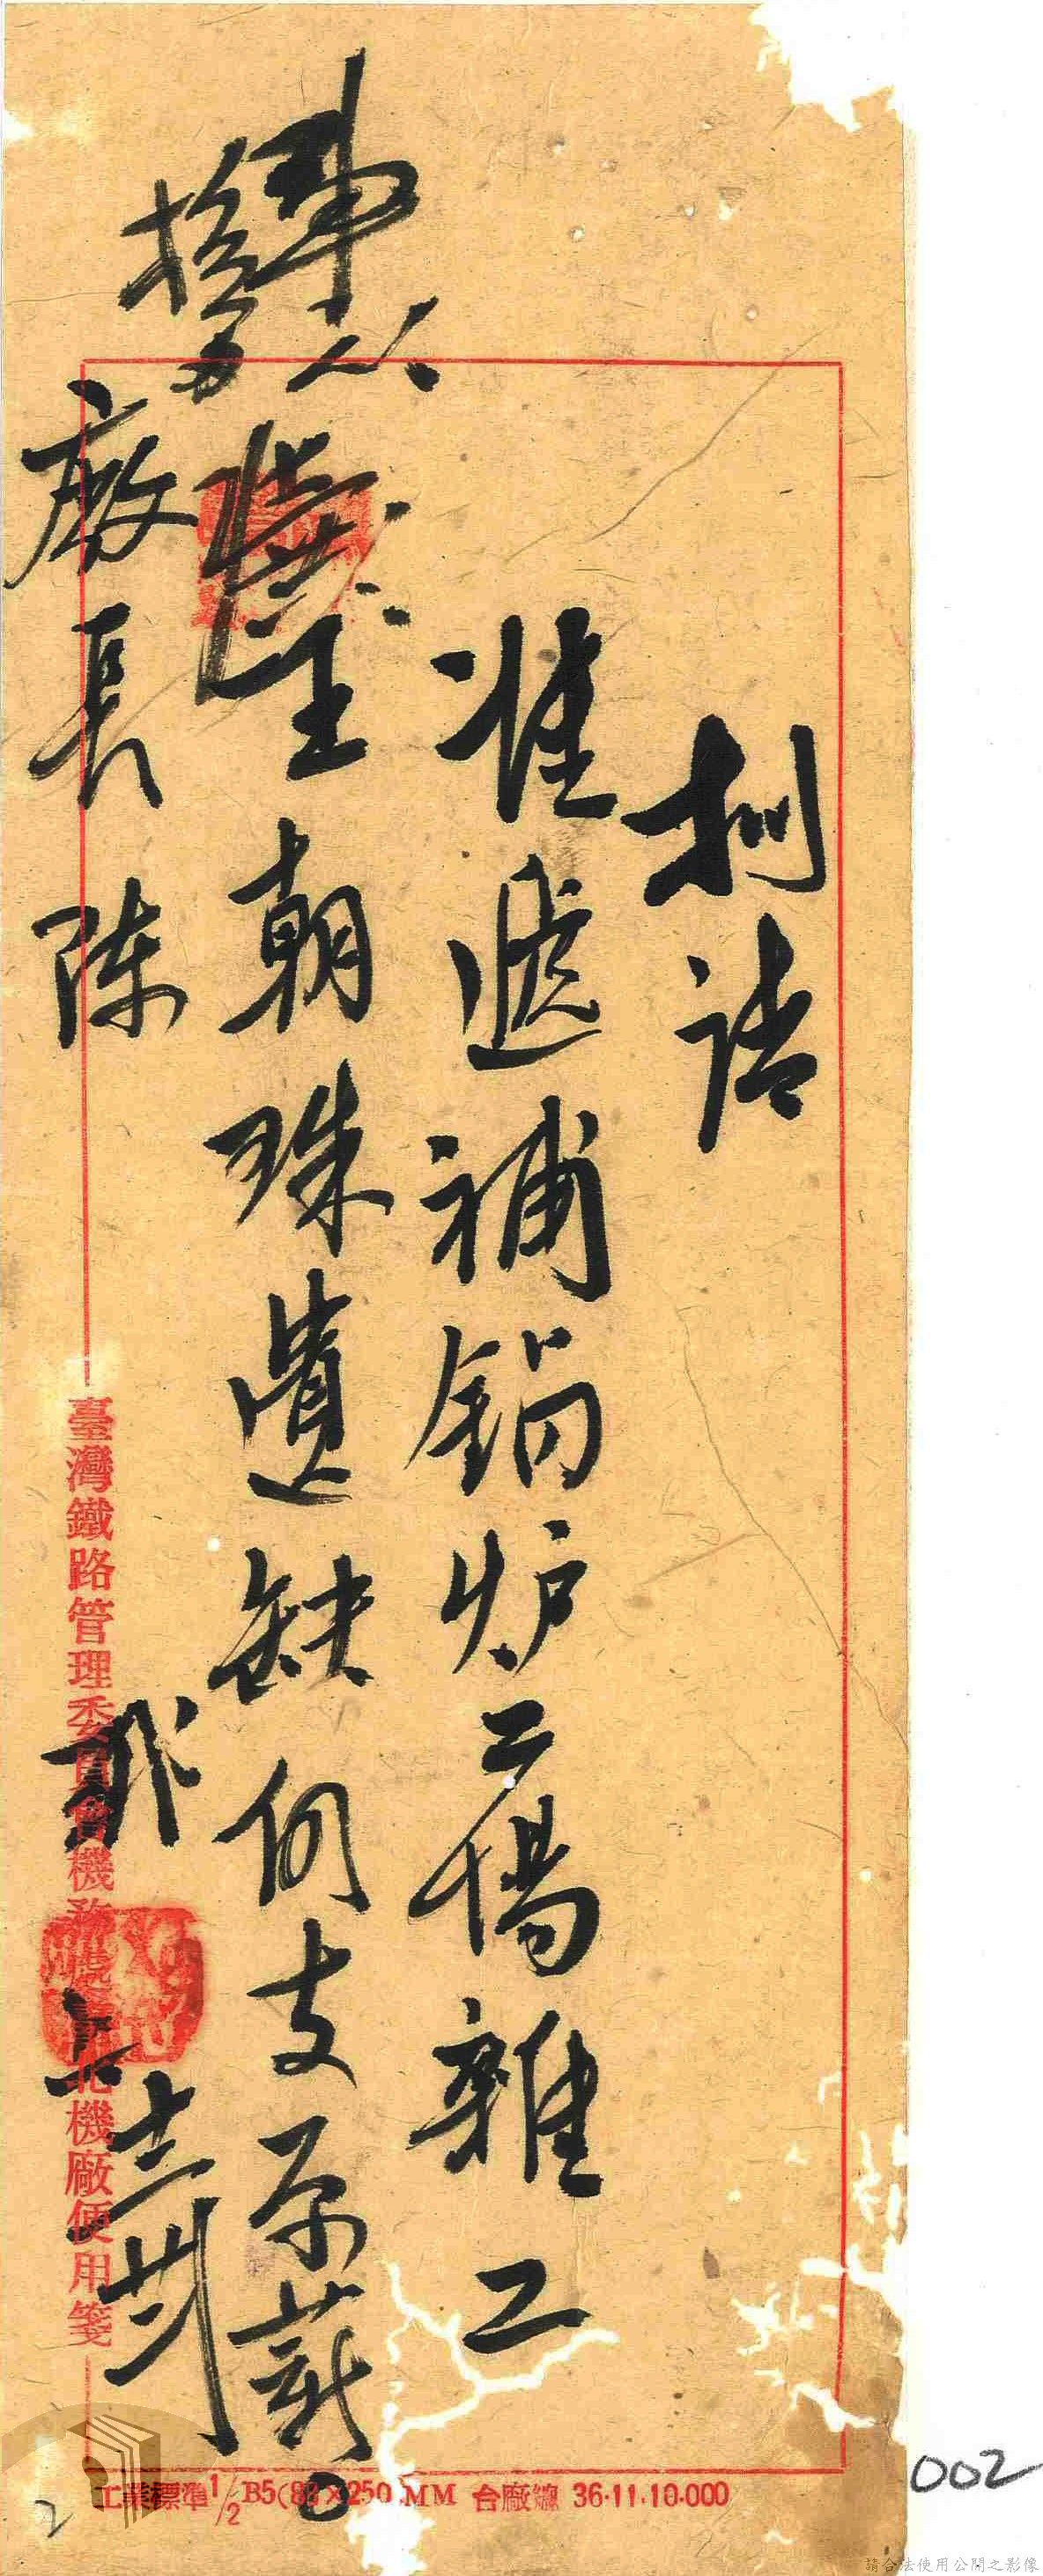 擬請
准遞補鍋炉工場雜工
王朝珠遺缺仍支原薪。
廠長 陳
十二 廿
臺灣鐵路管理委員會機務處臺北機廠便用箋
工業標準1/2 B5(88×250 MM 台廠 36·11·10·000
002
2
請合法使用公開之影像